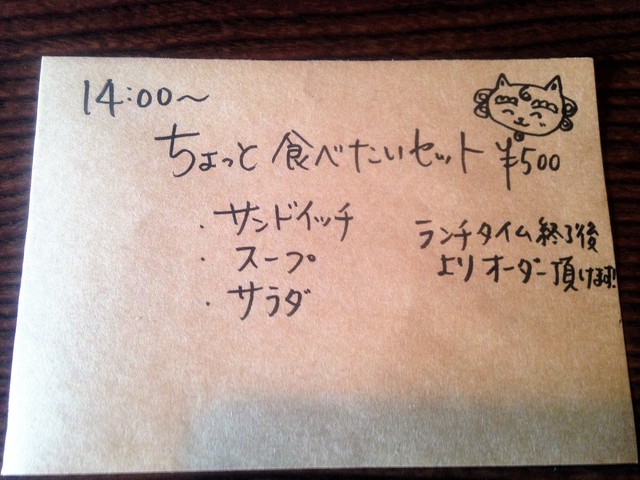 14:00～
ちょっと食べたいセット ¥500
・サンドイッチ
・スープ
・サラダ
ランチタイム終了後
よりオーダー頂けます!